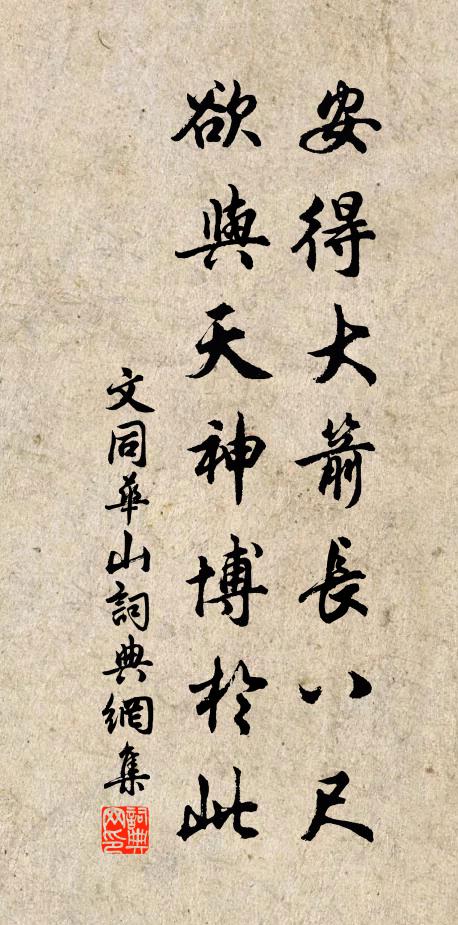 安得大箭長八尺
欲與天神博於此
文同華山詞典網集
詞典網印